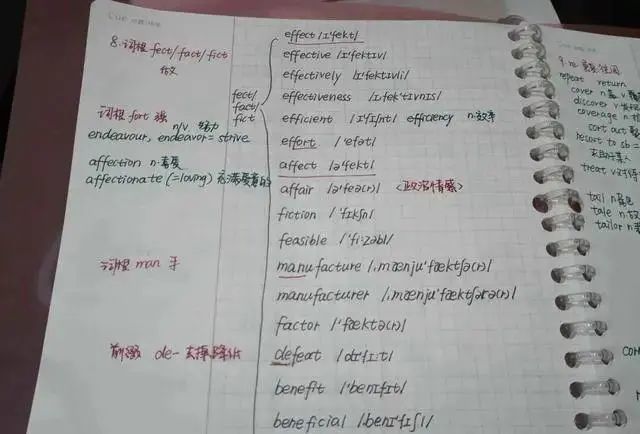 8. 词根 fect/fact/fict
做
fect/
fact/
fict
词根 fort 强
n/v. 努力
endeavour, endeavor= strive
affection n.喜爱
affectionate (=loving) 充满爱意的
词根 man 手
前缀 de- 去掉,降低
effect /ɪ'fekt/
effective /ɪ'fektɪv/
effectively /ɪ'fektɪvli/
effectiveness /ɪ,fek'tɪvnɪs/
efficient /ɪ'fɪʃnt/ efficiency n.效率
effort /'efət/
affect /ə'fekt/
affair /ə'feə(r)/ <政治情感>
fiction /'fɪkʃn/
feasible /'fi:zəbl/
manufacture /,mænju'fæktʃə(r)/
manufacturer /,mænju'fæktʃərə(r)/
factor /'fæktə(r)/
defeat /dɪ'fi:t/
benefit /'benɪfɪt/
beneficial /,benɪ'fɪʃl/
repeat return
cover n.盖 v.
discover v.
coverage n.
sort out
resort to sb =
求助于某人
treat v.对待
tail n.尾巴
tale n.
tailor n.